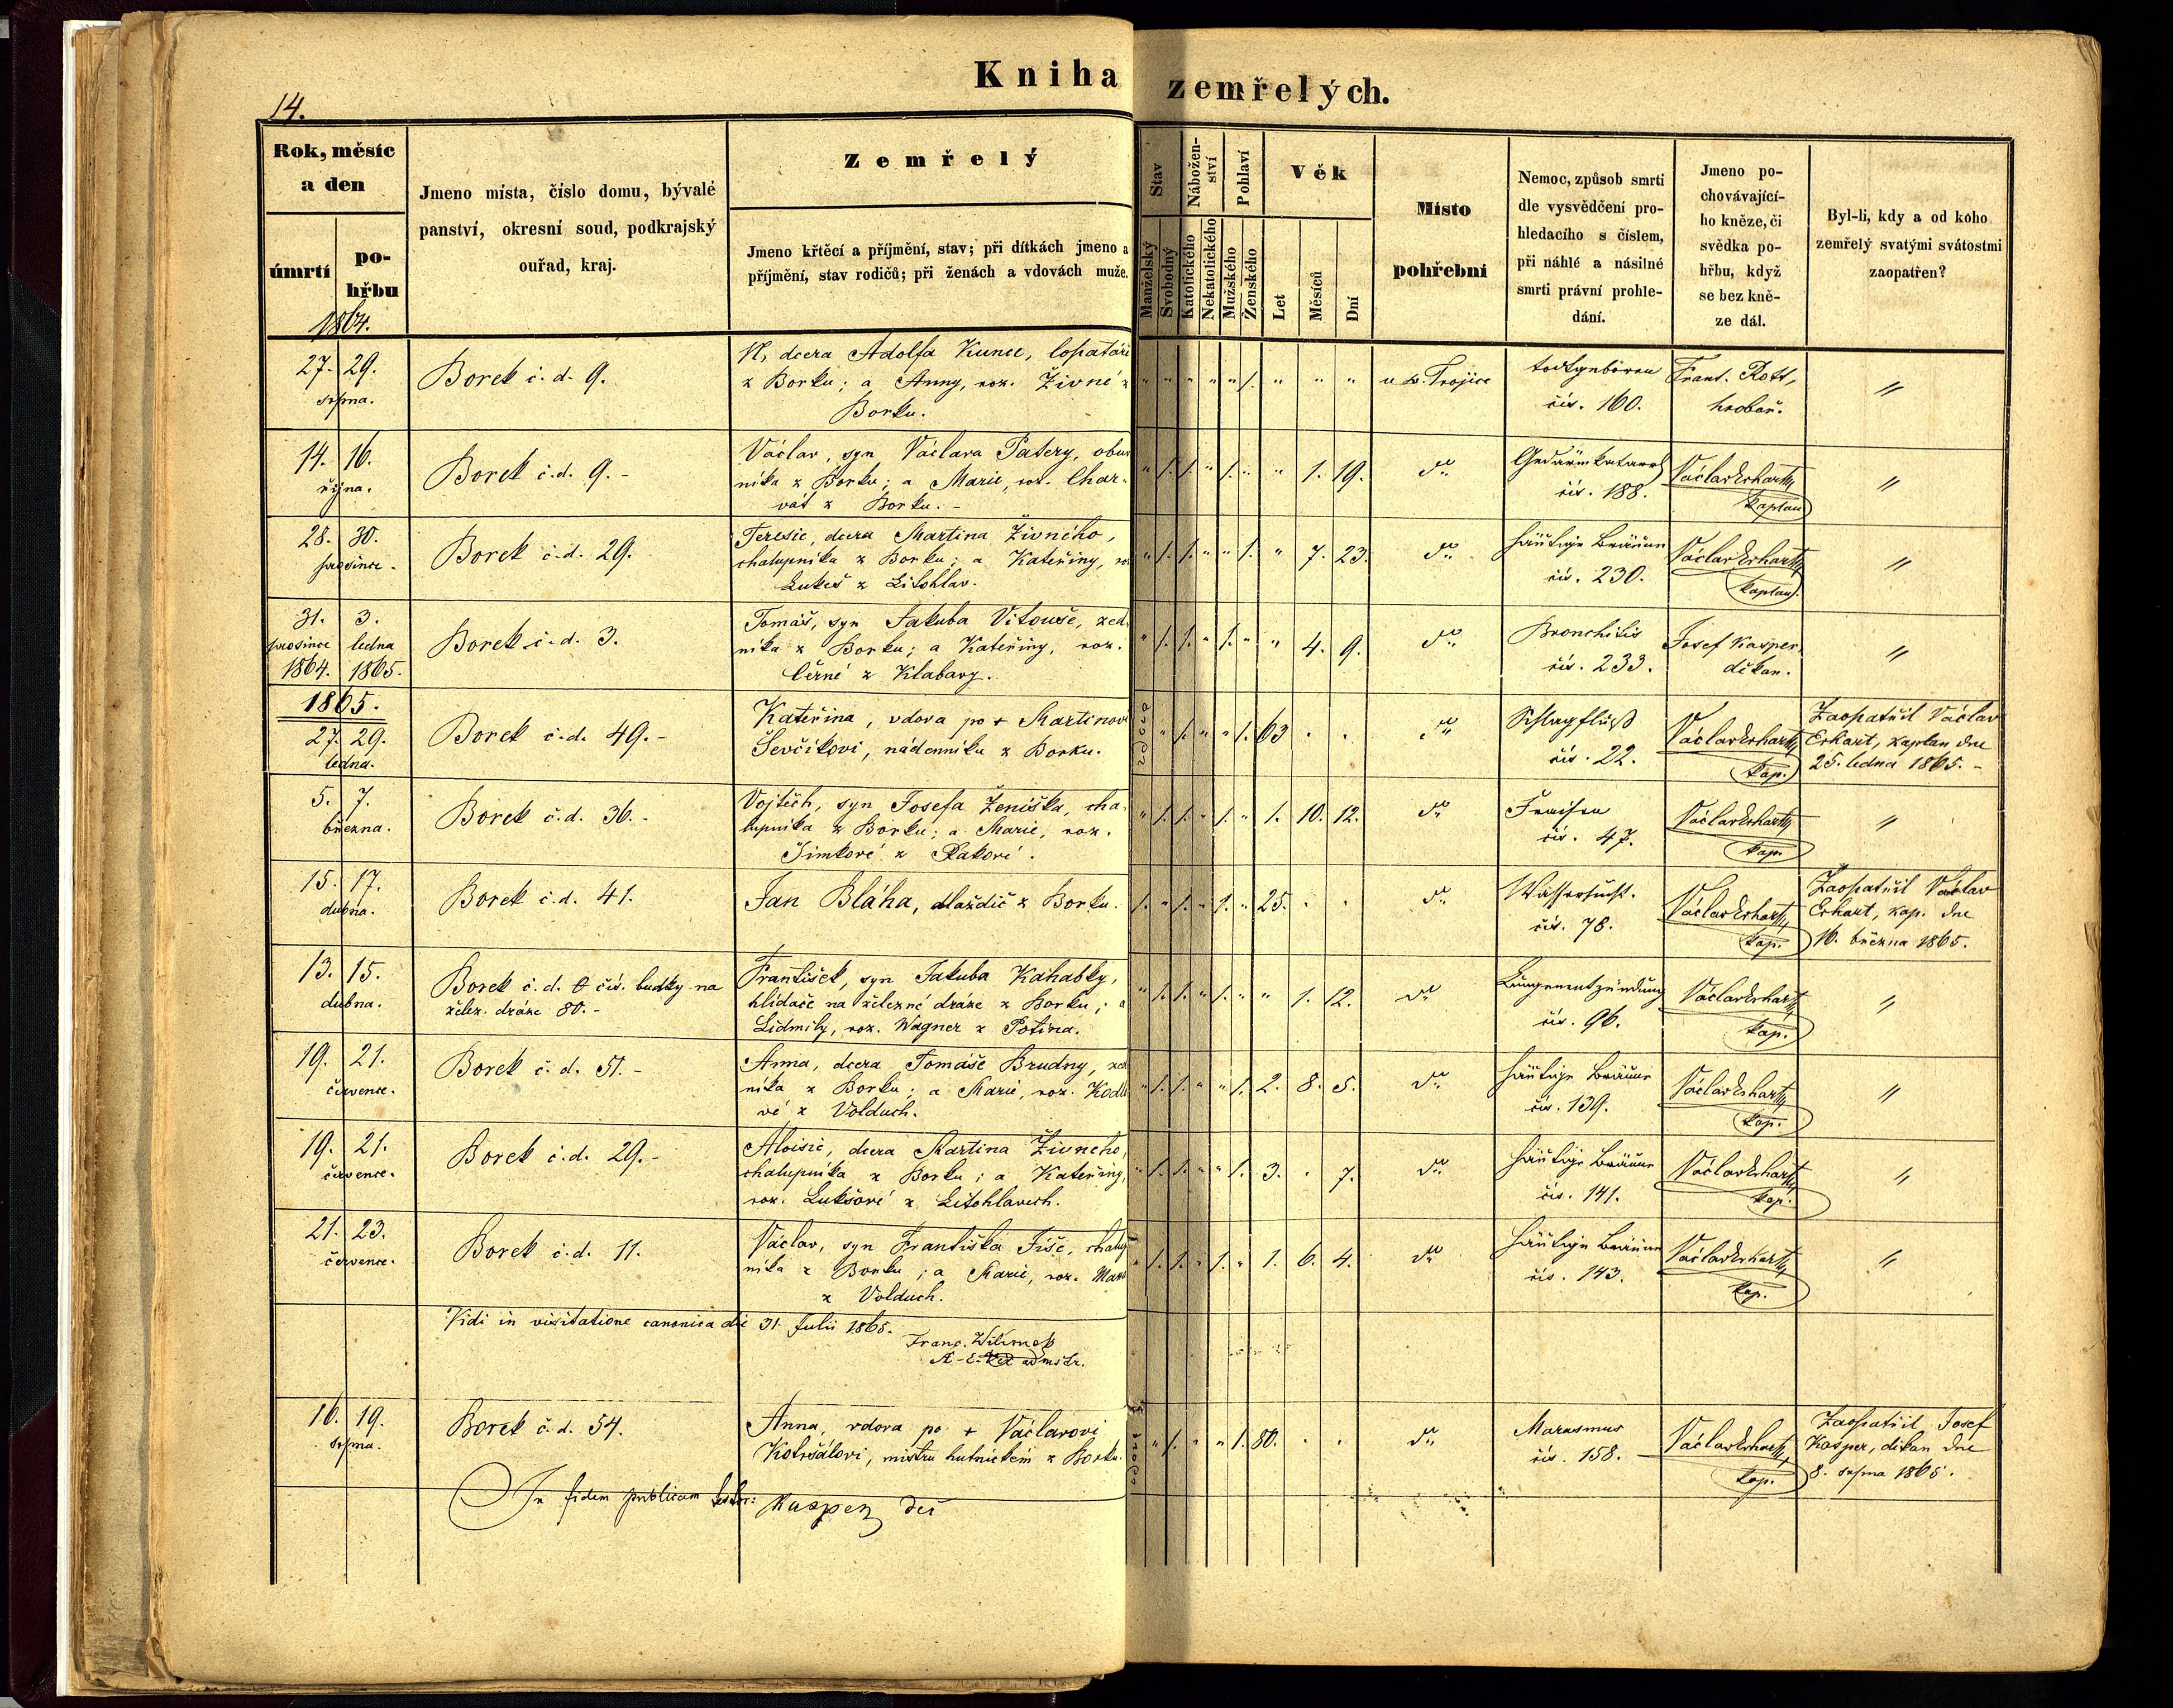 Kniha zemřelých.
14.
Rok, měsíc
a den
úmrtí
po-
hřbu
1864.
Jmeno místa, číslo domu, bývalé
panství, okresní soud, podkrajský
ouřad, kraj.
Zemřelý
Jmeno křtěcí a příjmění, stav; při dítkách jmeno a
příjmění, stav rodičů; při ženách a vdovách muže.
Stav
Manželský
Svobodný
Nábožen-
ství
Katolického
Nekatolického
Pohlaví
Mužského
Ženského
Věk
Let
Měsíců
Dní
Místo
pohřební
Nemoc, způsob smrti
dle vysvědčení pro-
hledacího s číslem,
při náhlé a násilné
smrti právní prohle-
dání.
Jmeno po-
chovávající-
ho kněze, či
svědka po-
hřbu, když
se bez kně-
ze dál.
Byl-li, kdy a od koho
zemřelý svatými svátostmi
zaopatřen?
27. 29.
srpna.
Borek č. d. 9.
N, dcera Adolfa Kunce, lopatáře
z Borku; a Anny, roz. Živné z
Borku.
" " " " " 1. " " "
u sv. Trojice
todtgeboren
čís. 160.
Frant. Rott,
hrobař.
"
14. 16.
října.
Borek č. d. 9. -
Václav, syn Václava Patery, obuv
níka z Borku; a Marie, roz. Char-
vát z Borku. -
" 1. 1. " 1. " " 1. 19.
dto
Gedärmkatarrh
čís. 188.
Václav Erhart,
kaplan
"
28. 30.
prosince.
Borek č. d. 29.
Teresie, dcera Martina Živného,
chalupníka z Borku; a Kateřiny, ro
Lukeš z Litohlav.
" 1. 1. " " 1. " 7. 23.
dto
häutige Bräune
čís. 230.
Václav Erhart,
kaplan.
"
31. 3.
prosince ledna
1864. 1865.
Borek č. d. 3.
Tomáš, syn Jakuba Vitouše, zed-
níka z Borku; a Kateřiny, roz.
Černé z Klabavy.
" 1. 1. " 1. " " 4. 9.
dto
Bronchitis
čís. 233.
Josef Kasper,
děkan.
"
1865.
27. 29.
ledna.
Borek č. d. 49. -
Kateřina, vdova po + Martinovi
Ševčíkovi, nádenníku z Borku.
vdova " 1. " " 1. 63 . .
dto
Schlagfluß
čís. 22.
Václav Erhart,
kap.
Zaopatřil Václav
Erhart, kaplan dne
25. ledna 1865. -
5. 7.
března.
Borek č. d. 36. -
Vojtěch, syn Josefa Ženíška, cha-
lupníka z Borku; a Marie, roz.
Šimkové z Rakové.
" 1. 1. " 1. " 1. 10. 12.
dto
Fraisen
čís. 47.
Václav Erhart,
kap.
"
15. 17.
dubna.
Borek č. d. 41.
Jan Bláha, dlaždič z Borku.
1. " 1. " 1. " 25. . .
dto
Wassersucht.
čís. 78.
Václav Erhart,
kap.
Zaopatřil Václav
Erhart, kap. dne
16. března 1865.
13. 15.
dubna.
Borek č. d. 0 čís. budky na
želez. dráze 80. -
František, syn Jakuba Kahabky,
hlídače na železné dráze z Borku; a
Lidmily, roz. Wagner z Potína.
" 1. 1. " 1. " " 1. 12.
dto
Lungenentzündung
čís. 96.
Václav Erhart,
kap.
"
19. 21.
července.
Borek č. d. 51. -
Anna, dcera Tomáše Brudny, zed
níka z Borku; a Marie, roz. Kodl
vé z Volduch.
" 1. 1. " " 1. 2. 8. 5.
dto
häutige Bräune
čís. 139.
Václav Erhart,
kap.
"
19. 21.
července.
Borek č. d. 29. -
Aloisie, dcera Martina Živného,
chalupníka z Borku; a Kateřiny,
roz. Lukšové z Litohlavech.
" 1. 1. " " 1. 3. . 7.
dto
häutige Bräune
čís. 141.
Václav Erhart,
kap.
"
21. 23.
července.
Borek č. d. 11.
Václav, syn Františka Fišc, chalup
níka z Borku; a Marie, roz.
z Volduch.
" 1. 1. " 1. " 1. 6. 4.
dto
häutige Bräune
čís. 143.
Václav Erhart,
kap.
"
Vidi in visitatione canonica die 31. Julii 1865.
Franc. Wilimek
admstr.
16. 19.
srpna.
Borek č. d. 54.
Anna, vdova po + Václavovi
Kotršálovi, mistru hutnickém z Borku.
vdova " 1. " " 1. 80. . .
dto
Marasmus
čís. 158.
Václav Erhart,
kap.
Zaopatřil Josef
Kasper, děkan dne
8. srpna 1865.
In fidem publicam testor: Kasper děk